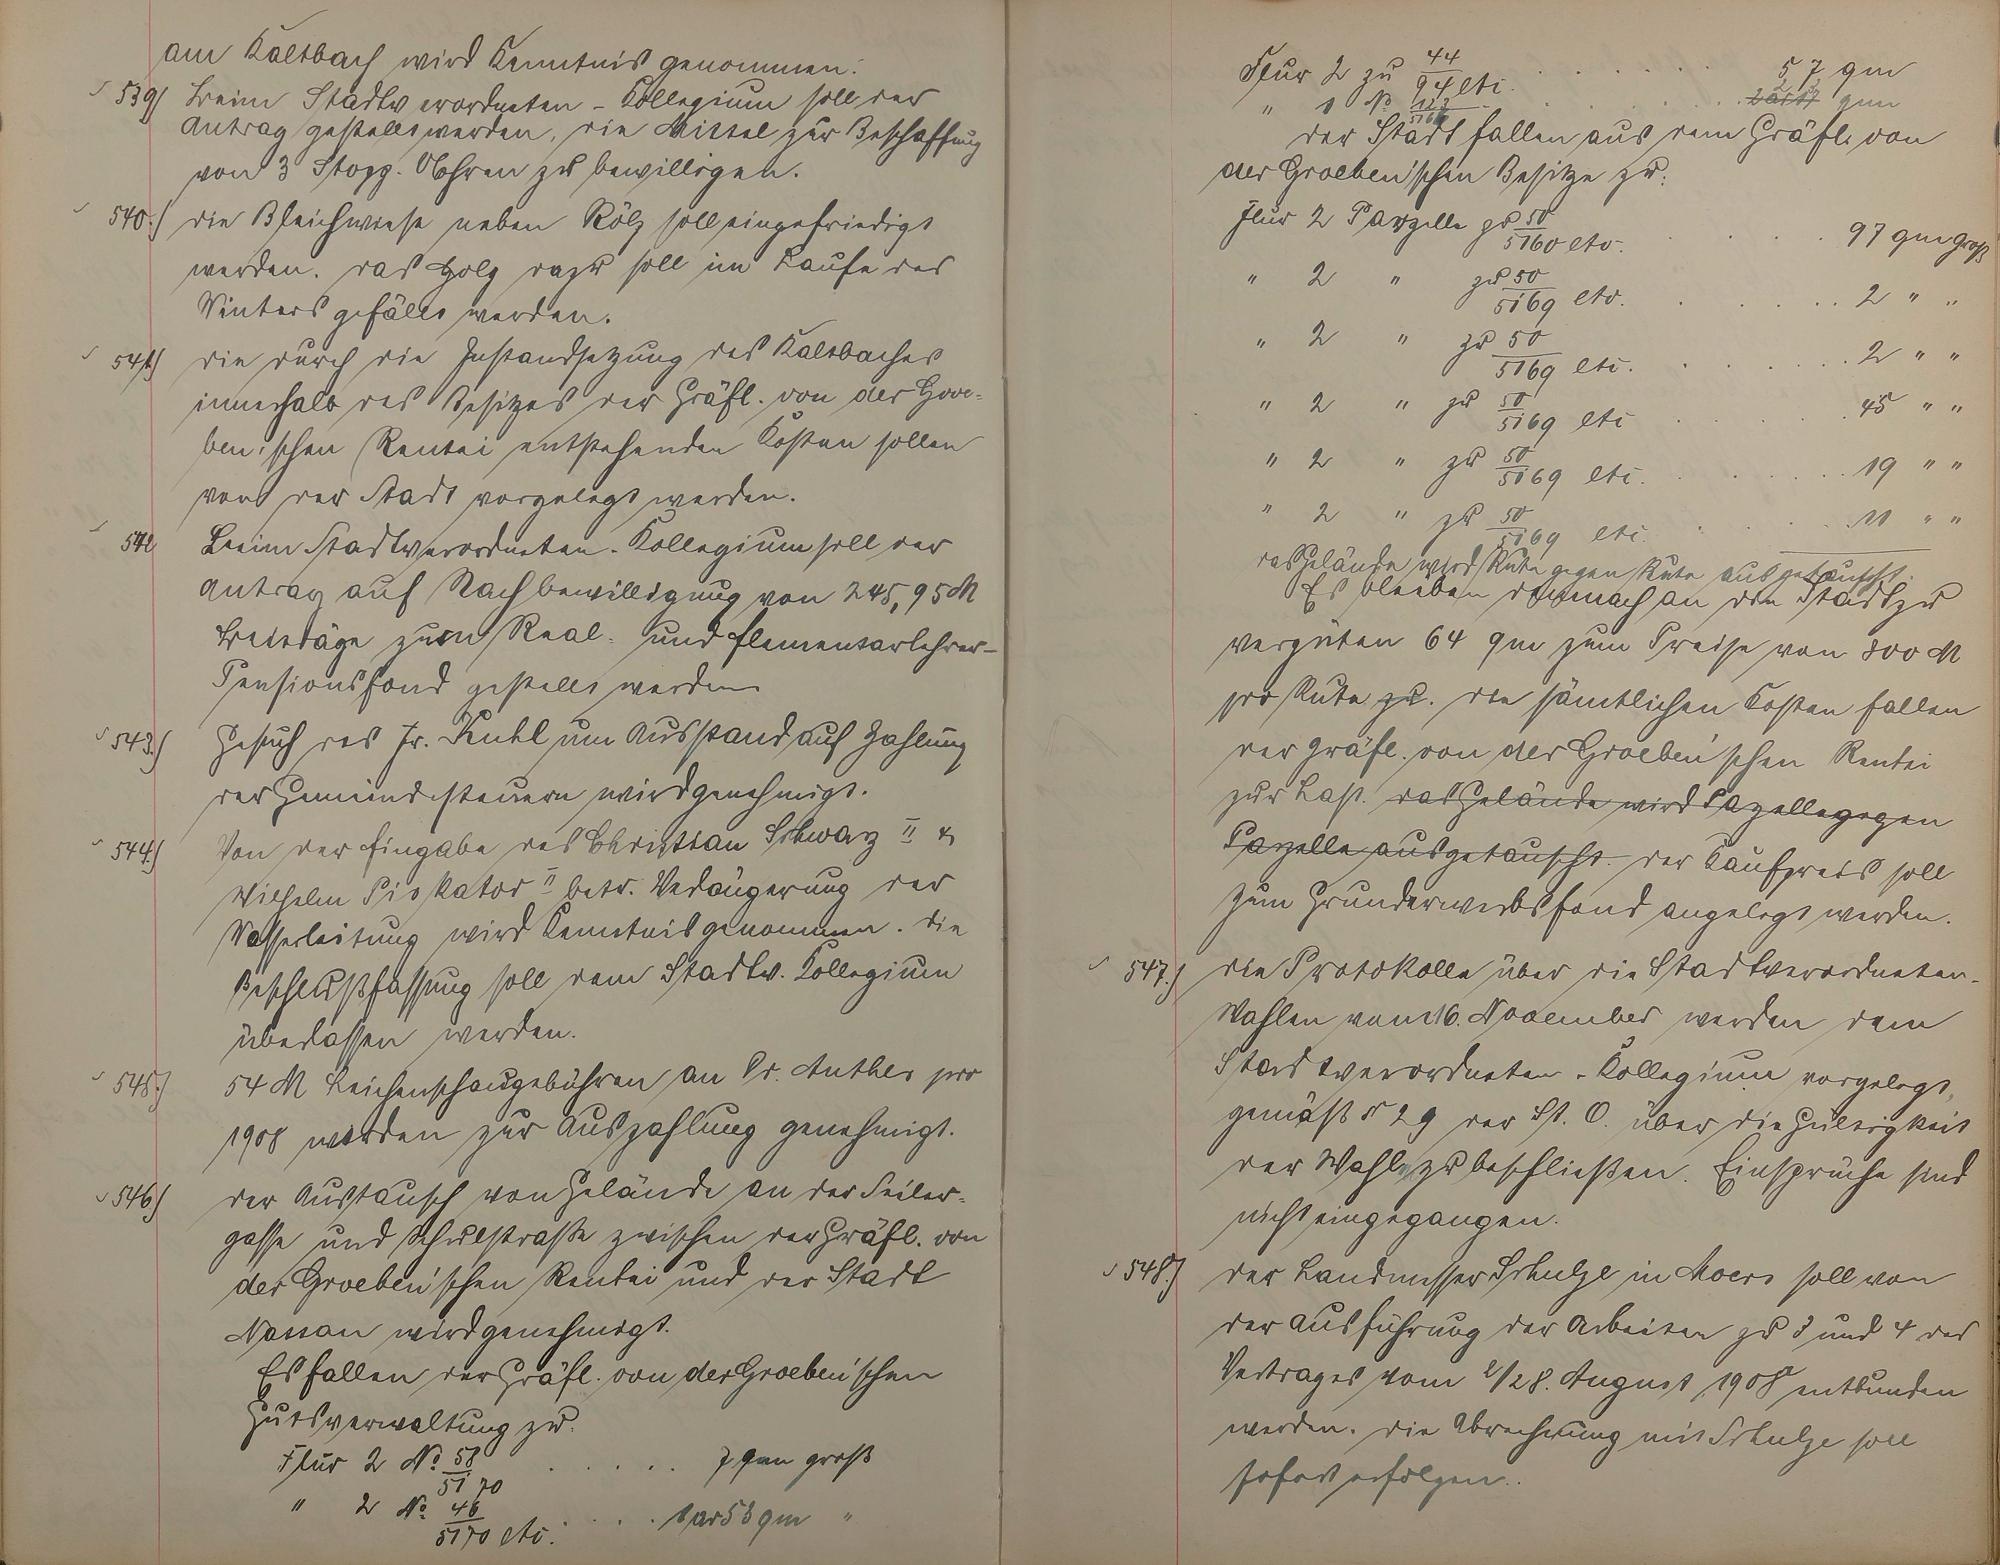 am Kaltbach wird Kenntnis genommen.
539) Beim Stadtverordneten-Kollegium soll der
Antrag gestellt werden, die Mittel zur Beschaffung
von 3 Stopp. Uhren zu bewilligen.
540.) Die Bleichwiese neben Rölz soll eingefriedigt
werden. Das Holz dazu soll im Laufe des
Winters gefällt werden.
541) Die durch die Instandsetzung des Kaltbaches
innerhalb des Besitzes der Gräfl. von der Groe-
ben'schen Rentei entstehenden Kosten sollen
von der Stadt vorgelegt werden.
542 Beim Stadtverordneten-Kollegium soll der
Antrag auf Nachbewilligung von 245,95 M
Beiträge zum Real- und Elementarlehrer-
Pensionsfond gestellt werden
543.) Gesuch des Fr. um Ausstand auf Zahlung
der Gemeindesteuern wird genehmigt.
544.) Von der Eingabe des Christian Schwarz II &
Wilhelm Piskator II betr. Verlängerung der
Wasserleitung wird Kenntnis genommen. Die
Beschlußfassung soll dem Stadtv. Kollegium
überlassen werden.
545.) 54 M Leichenschaugebühren an Dr. Anthes pro
1908 werden zur Auszahlung genehmigt.
546) Der Austausch von Gelände an der Seiler-
gasse und Schulstraße zwischen der Gräfl. von
der Groeben'schen Rentei und der Stadt
Nassau wird genehmigt.
Es fallen der Gräfl. von der Groeben'schen
Gutsverwaltung zu:
Flur 2 No. 58/5170 . . . . . 7 qm groß
" 2 No. 46/5170 etc. . . . . 1 ar 53 qm "
Flur 2 zu 44/94 etc. . . . . . . 57 qm
" 1 No. . . . . . . qm
Der Stadt fallen aus dem Gräfl. von
der Groeben'schen Besitze zu:
Flur 2 Parzelle zu 50/5160 etc. . . . . 97 qm groß
" 2 " zu 50/5169 etc. . . . . . 2 " "
" 2 " zu 50/5169 etc. . . . . . 2 " "
" 2 " zu 50/5169 etc . . . . . 45 " "
" 2 " zu 50/5169 etc. . . . . . 19 " "
" 2 " zu 50/5169 etc. . . . . . 11 " "
Das Gelände wird Rute gegen Rute ausgetauscht.
Es bleiben demnach an die Stadt zu
vergüten 64 qm zum Preise von 800 M
pro Rute zu. Die sämtlichen Kosten fallen
der Gräfl. von der Groeben'schen Rentei
zur Last. Das Gelände wird Pazelle gegen
Pazelle ausgetauscht. Der Kaufpreis soll
zum Grunderwerbsfond angelegt werden.
547.) Die Protokolle über die Stadtverordneten-
Wahlen vom 16. November werden dem
Stadtverordneten-Kollegium vorgelegt,
gemäß § 29 der St. O. über die Gültigkeit
der Wahl zu beschließen. Einsprüche sind
nicht eingegangen.
548.) Der Landmesser Schulze in Moers soll von
der Ausführung der Arbeiten zu 3 und 4 des
Vertrages vom 2/28. August 1908 entbunden
werden. Die Abrechnung mit Schulze soll
sofort erfolgen.